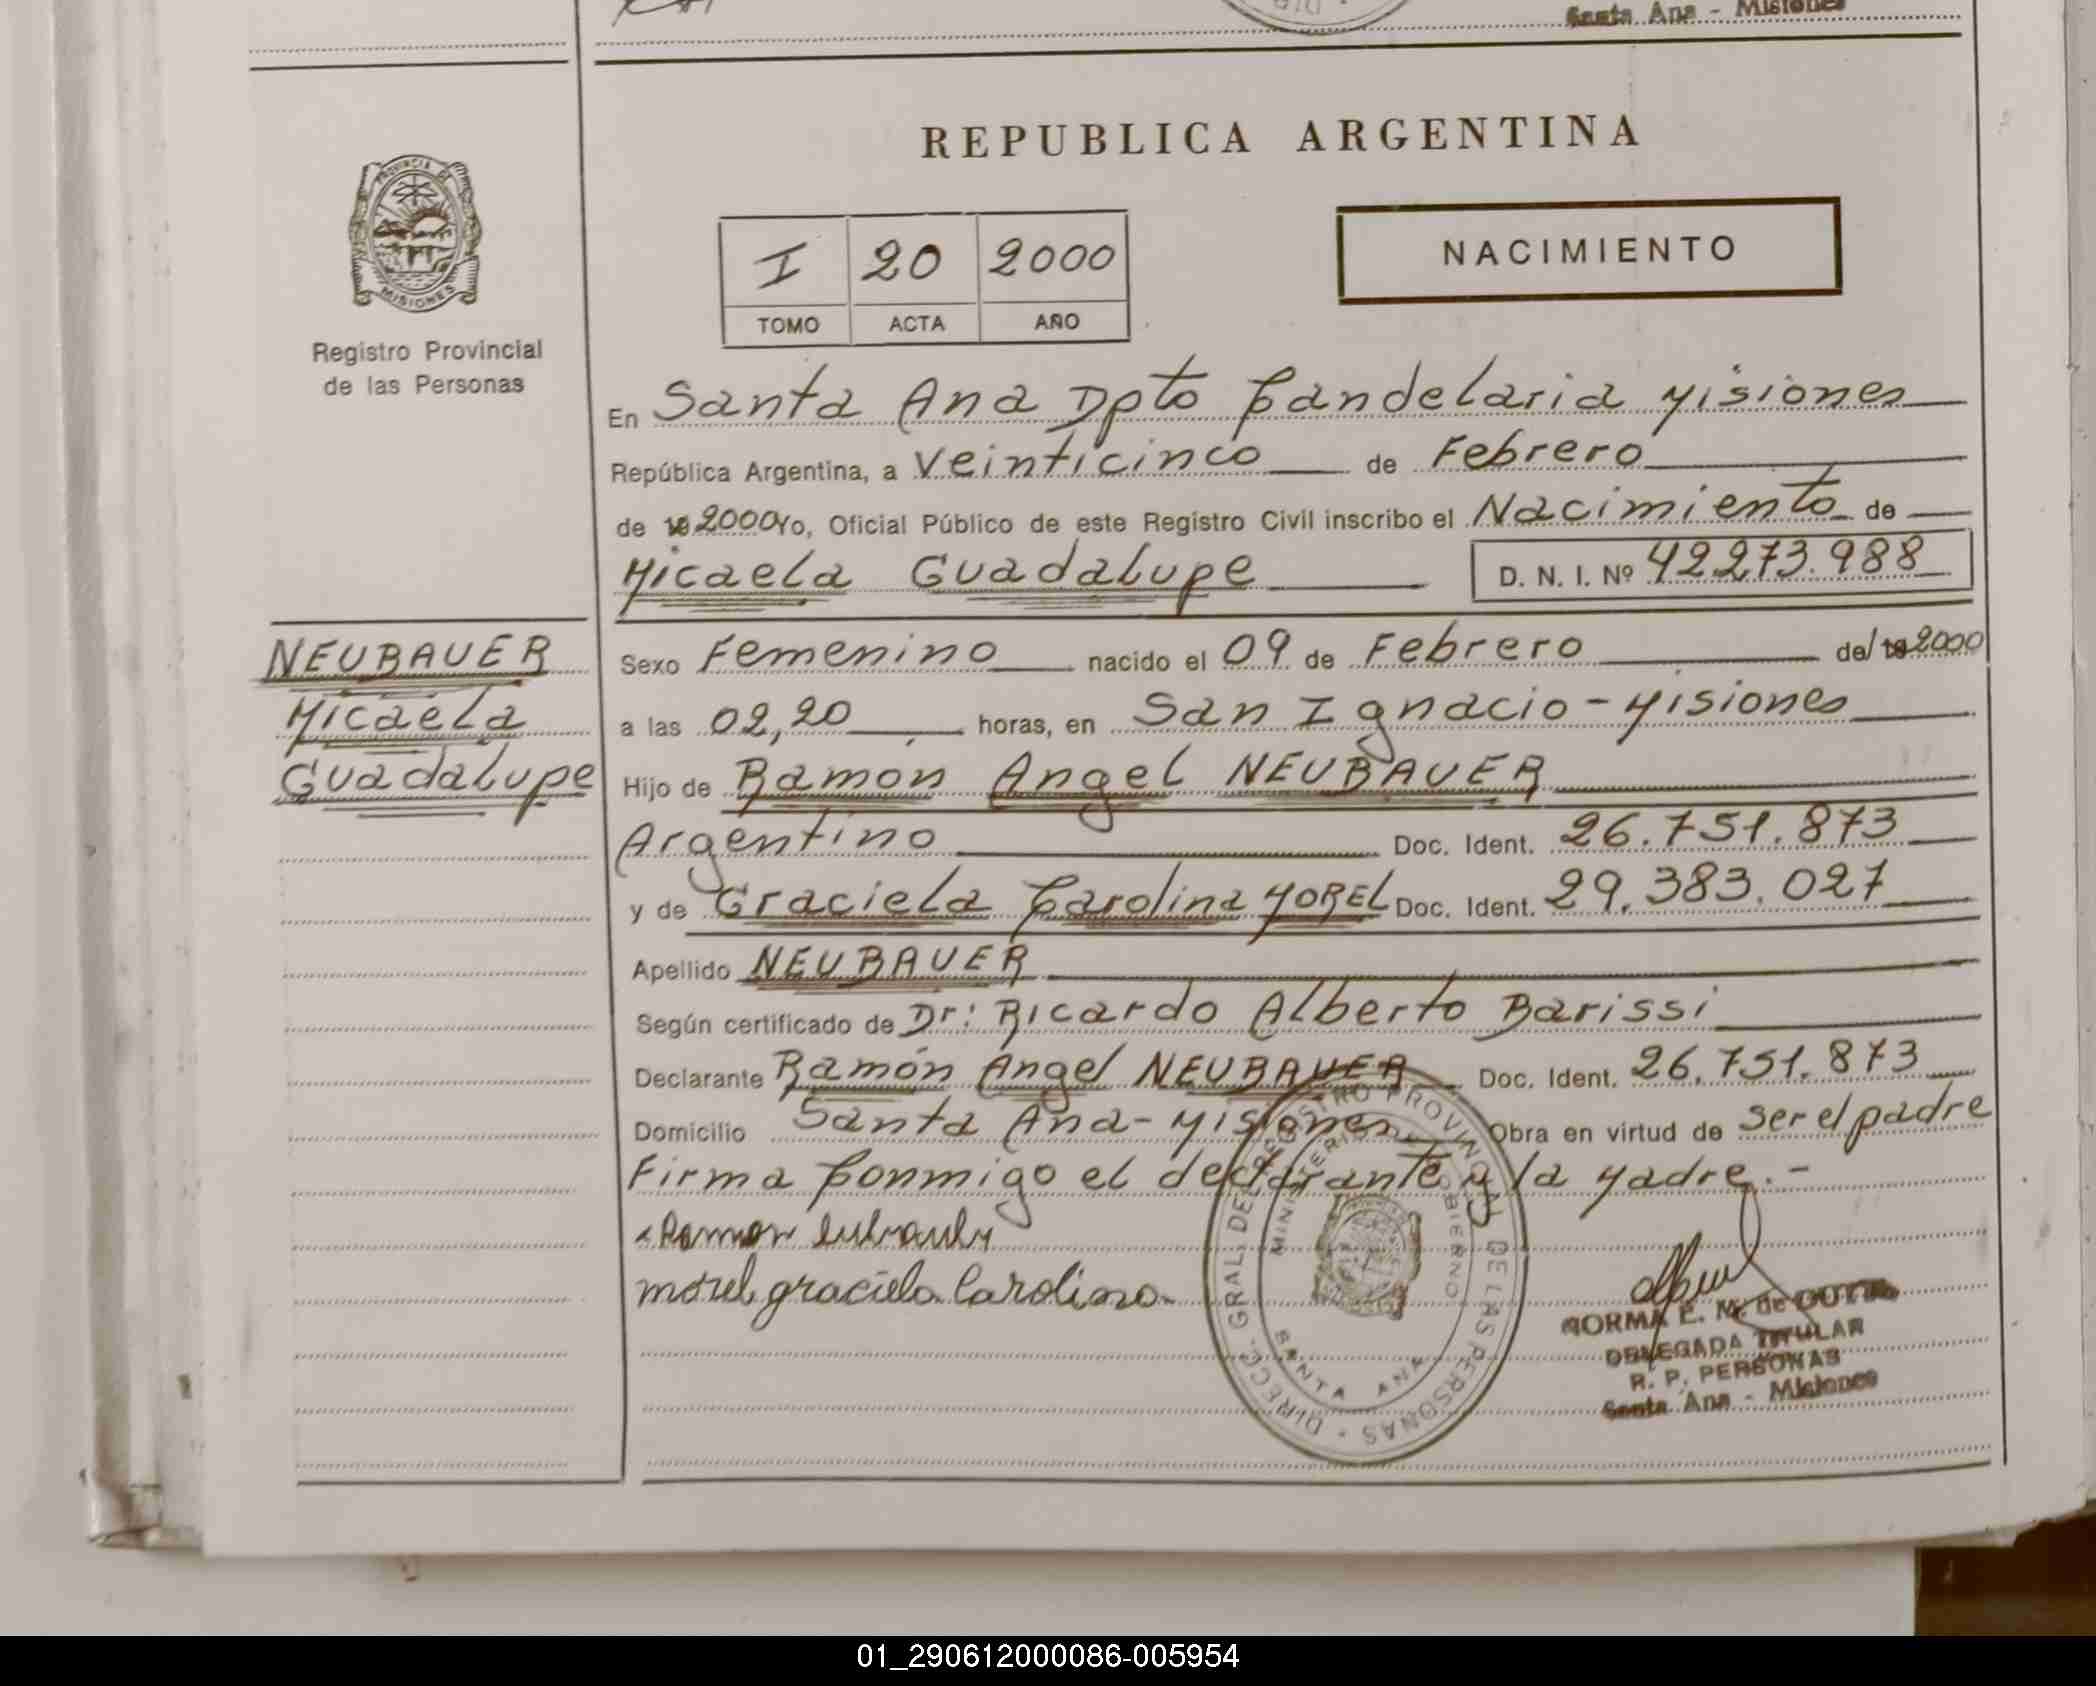 Santa Ana - Misiones
REPUBLICA ARGENTINA
PROVINCIA DE
MISIONES
Registro Provincial
de las Personas
I 20 2000
TOMO ACTA AÑO
NACIMIENTO
En Santa Ana Dpto Candelaria Misiones
República Argentina, a Veinticinco de Febrero
de 19 2000 Yo, Oficial Público de este Registro Civil inscribo el Nacimiento de
Micaela Guadalupe D. N. I. Nº 42273.988
NEUBAUER
Micaela
Guadalupe
Sexo Femenino nacido el 09 de Febrero de/ 19 2000
a las 02,20 horas, en San Ignacio - Misiones
Hijo de Ramon Angel NEUBAUER
Argentino Doc. Ident. 26.751.873
y de Graciela Carolina MOREL Doc. Ident. 29.383.027
Apellido NEUBAUER
Según certificado de Dr: Ricardo Alberto Barissi
Declarante Ramón Angel NEUBAUER Doc. Ident. 26.751.873
Domicilio Santa Ana - Misiones Obra en virtud de ser el padre
Firma Conmigo el declarante y la Madre. -
Ramon
morel graciela Carolina
DIRECC. GRAL. DEL REGISTRO PROVINCIAL DE LAS PERSONAS
MINISTERIO DE GOBIERNO
SANTA ANA
NORMA E. M. de
DELEGADA TITULAR
R. P. PERSONAS
Santa Ana - Misiones
01_290612000086-005954